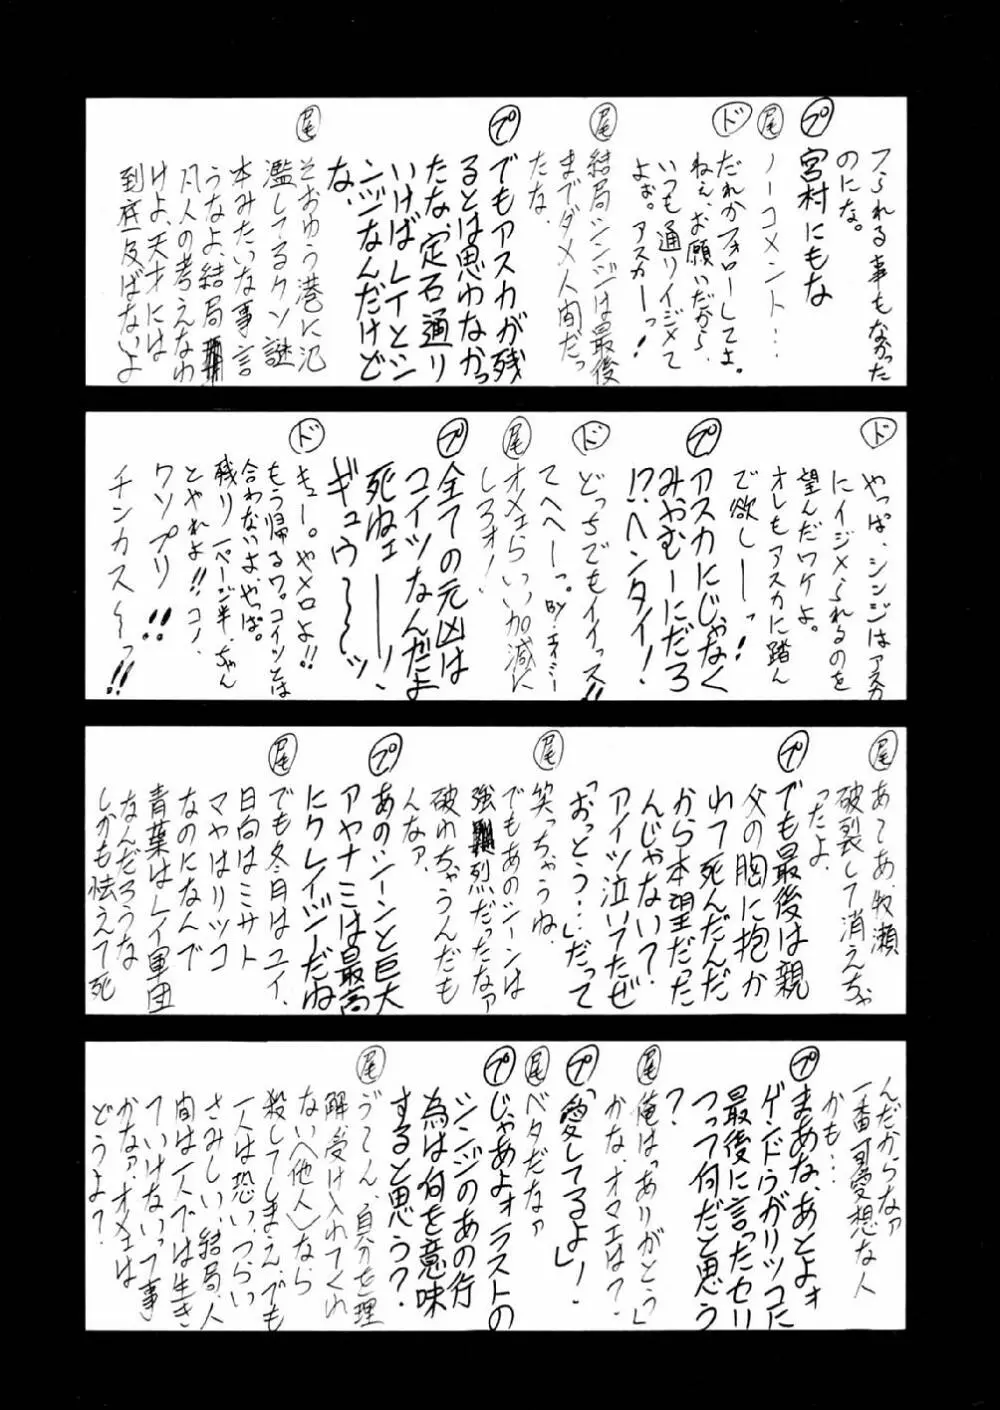 フられる事もなかった
のにな。
プ 宮村にもな
尾 ノーコメント…
ド だれかフォローしてよ。
ねぇ、お願いだから、
いつも通りイジメて
よぉ。アスカーっ!
尾 結局シンジは最後
までダメ人間だっ
たな。
プ でもアスカが残
るとは思わなかっ
たな、定石通り
いけばレイとシ
ンジなんだけど
な、
尾 そおゆう港に氾
濫してるクソ謎
本みたいな事言
うなよ、結局
凡人の考えなわ
けよ、天才には
到底及ばないよ
ド やっぱ、シンジはアスカ
にイジメられるのを
望んだワケよ。
オレもアスカに踏ん
で欲しーっ!
プ アスカにじゃなく
みやむーにだろ
!?ヘンタイ!
ド どっちでもイイっス!!
てへへーっ。
尾 オメェらいい加減に
しろオ!
プ 全ての元凶は
コイツなんだよ
死ねェーー!
ギュウ〜〜〜ッ
ド キュー。やメロよ!!
もう帰るワ。コイツとは
合わないよ、やっぱ。
残り一ページ半、ちゃん
とやれよ!!コノ、
クソプリ!!
チンカス〜〜っ!!
尾 あてあ、牧瀬
破裂して消えちゃ
ったよ
プ でも最後は親
父の胸に抱か
れて死んだんだ
から本望だった
んじゃない?
アイツ泣いてたぜ
「おっとう…」だって
尾 笑っちゃうね、
でもあのシーンは
強烈だったなァ
破れちゃうんだも
んなァ、
プ あのシーンと巨大
アヤナミは最高
にクレイジーだね
尾 でも冬月はユイ、
日向はミサト
マヤはリツコ
なのになんで
青葉はレイ軍団
なんだろうな
しかも怯えて死
んだからなァ
一番可愛想な人
かも…
プ まあな、あとよォ
ゲンドウがリツコに
最後に言ったセリ
フって何だと思う
?
尾 俺は「ありがとう」
かな、オマエは?
プ 「愛してるよ」!
尾 ベタだなァ
プ じゃあよォラストの
シンジのあの行
為は何を意味
すると思う?
尾 うてん、自分を理
解、受け入れてくれ
ない〈他人〉なら
殺してしまえ、でも
一人は恐い、つらい
さみしい、結局、人
間は一人では生き
ていけないって事
かなァ、オメエは
どうよ?